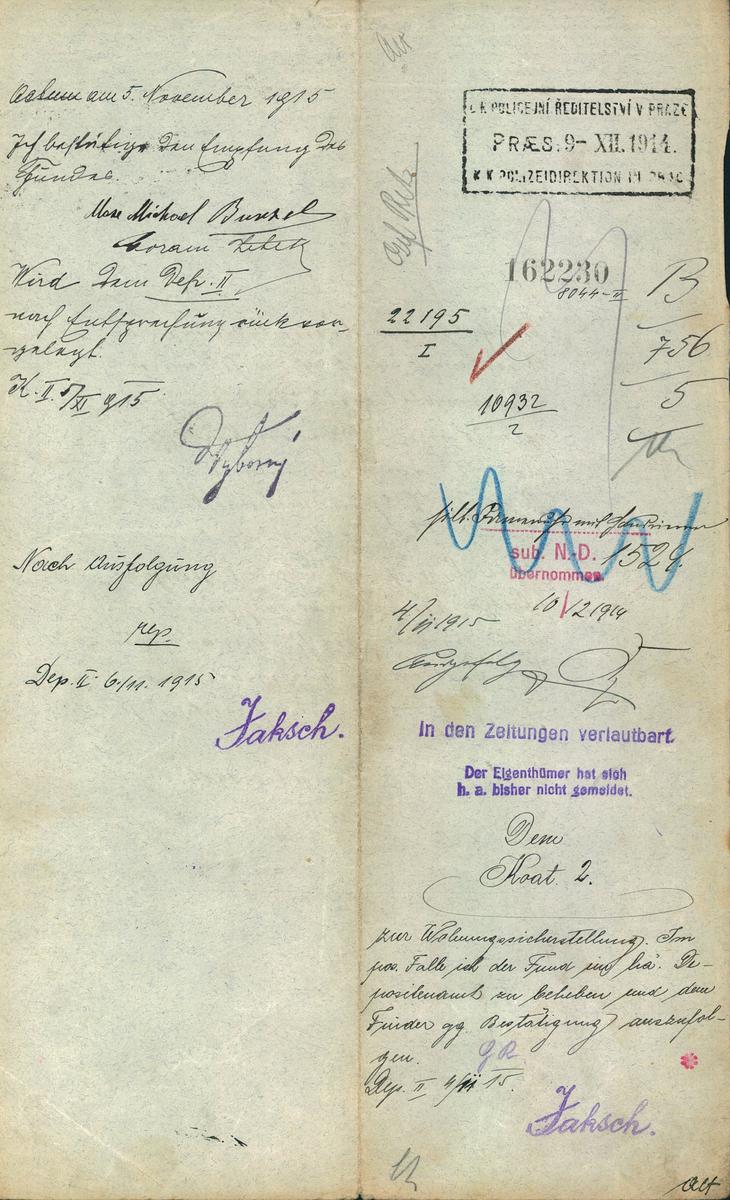 am 5. November 1915
Ich bestätige den Empfang des
Fundes.
Michael
coram
Wird dem Dep. II
nach Entsprechung rückvor-
gelegt.
K. II. 5/XI 1915
Nach Ausfolgung
rep.
Dep. II. 6/11. 1915
Jaksch.
K.K. POLICEJNÍ ŘEDITELSTVÍ V PRAZE
PRÆS. 9- XII. 1914.
K.K. POLIZEIDIREKTION IN PRAG
162230
8044-II
22195
I
B
756
5
10932
2
silb. mit
sub. N.-D. 1524.
übernommen.
10/12 1914
4/11 1915
Ausgefolgt
In den Zeitungen verlautbart.
Der Eigenthümer hat sich
h. a. bisher nicht gemeldet.
Dem
Koat. 2.
zur Wohnungssicherstellung. Im
pos. Falle ist der Fund im hä. De-
positenamt zu beheben und dem
Finder gg. Bestätigung auszufol-
gen.
Dep. II 4/11 15.
Jaksch.